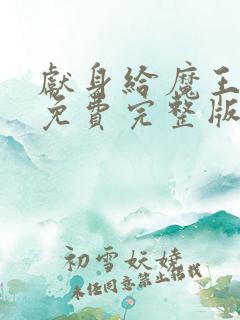 獻身給魔王
免費完整版
初雪妖嬈
未经同意禁止搭戏